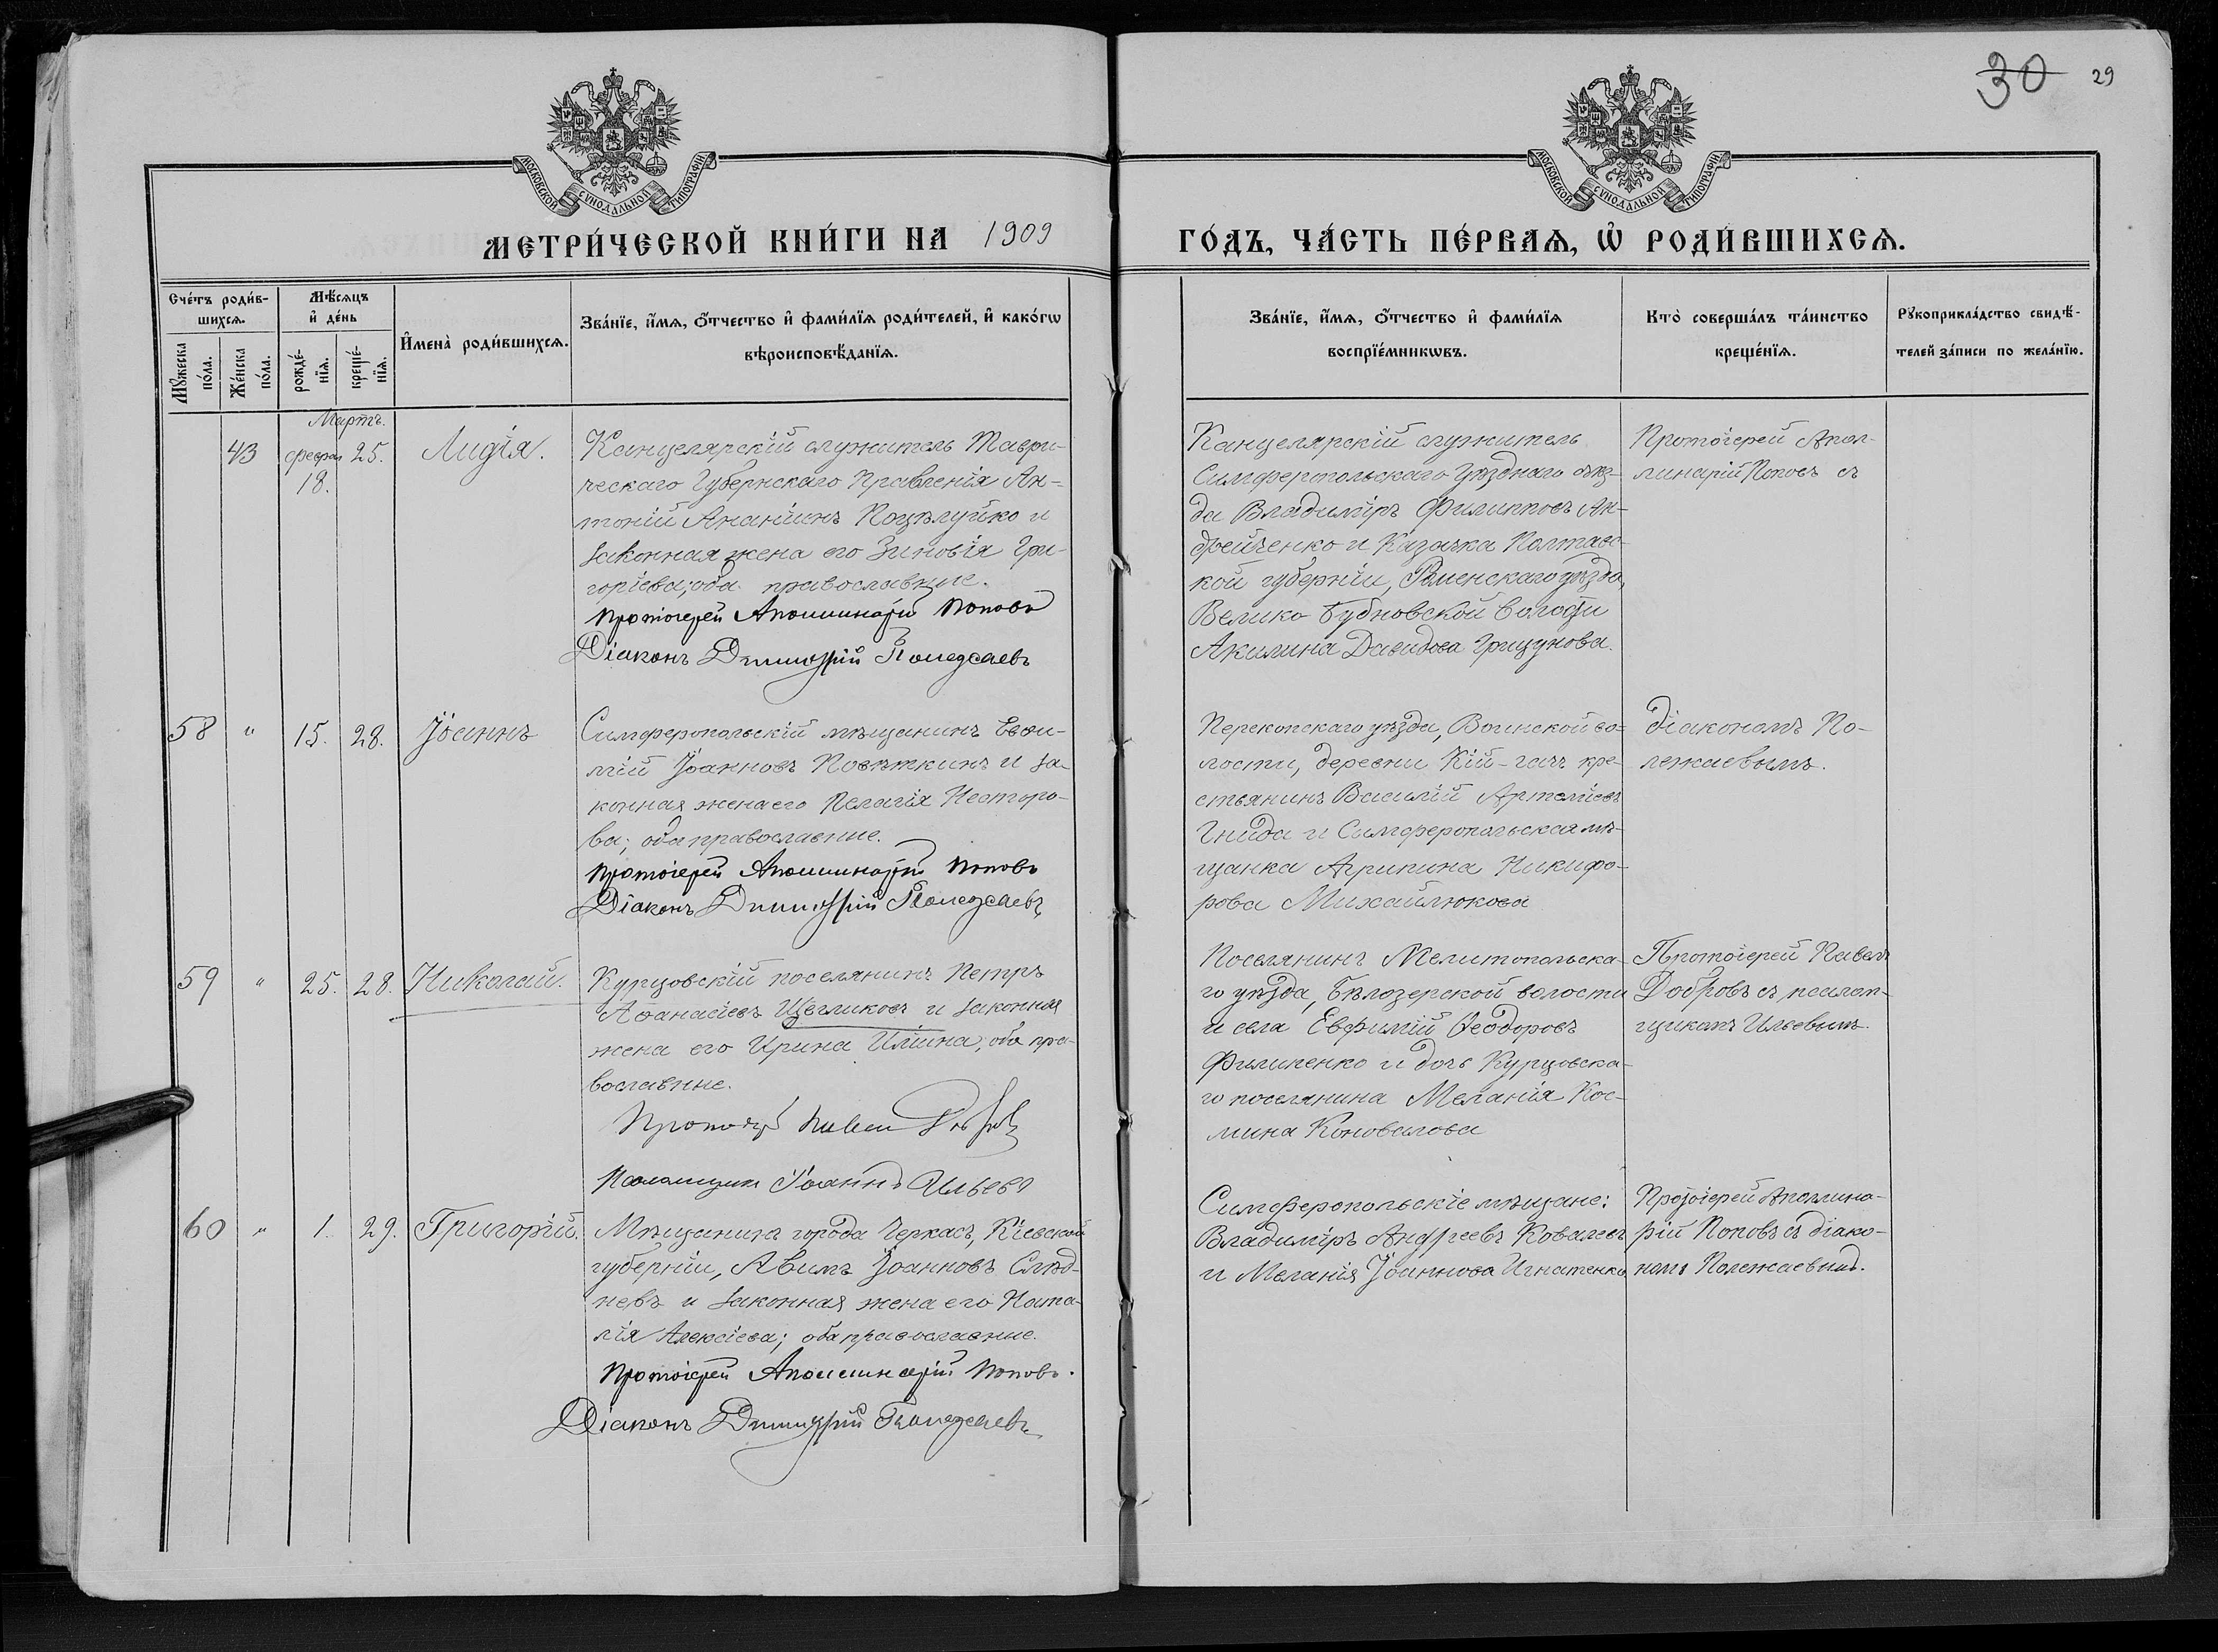 30 29
МОСКОВСКОЙ СѴНОДАЛЬНОЙ ТИПОГРАФІИ
МОСКОВСКОЙ СѴНОДАЛЬНОЙ ТИПОГРАФІИ
МЕТРИ́ЧЕСКОЙ КНИ́ГИ НА 1909 ГО́ДЪ, ЧА́СТЬ ПЕ́РВАѦ, Ѡ҆ РОДИ́ВШИХСѦ.
Сче́тъ роди́в-
шихсѧ.
Мѹ́жеска
по́ла.
Же́нска
по́ла.
Мѣ́сѧцъ
и҆ де́нь
рожде́-
нїѧ.
креще́-
нїѧ.
И҆мена̀ роди́вшихсѧ.
Зва́нїе, и҆́мѧ, ѻ҆́тчество и҆ фами́лїѧ роди́телей, и҆ како́гѡ
вѣроисповѣ́данїѧ.
Зва́нїе, и҆́мѧ, ѻ҆́тчество и҆ фами́лїѧ
воспрїе́мникѡвъ.
Кто̀ соверша́лъ та́инство
креще́нїѧ.
Рѹкоприкла́дство свидѣ́-
телей за́писи по жела́нїю.
Мартъ.
43 феврал 25. Лидія.
18.
Канцелярскій служитель Таври-
ческаго Губернскаго Правленія Ан-
тоній Ананіинъ Поцѣлуйко и
законная жена его Зиновія Гри-
горіева; оба православные.
Протоіерей Аполлинарій Поповъ
Діаконъ Димитрій Полежаевъ
Канцелярскій служитель
Симферопольскаго Уѣзднаго съѣз-
да Владиміръ Филипповъ Ан-
дрейченко и Казачка Полтавс-
кой губерніи, Роменскаго уѣзда,
Велико Бубновской волости
Акилина Давидова Грицунова.
Протоіерей Апол-
линарій Поповъ съ
58 " 15. 28. Іоаннъ
Симферопольскій мѣщанинъ Евѳи-
мій Іоанновъ Повѣткинъ и за-
конная жена его Пелагія Несторо-
ва; оба православные.
Протоіерей Аполлинарій Поповъ
Діаконъ Димитрій Полежаевъ
Перекопскаго уѣзда, Воинской во-
лости, деревни Кій-гачъ кре-
стьянинъ Василій Артеміевъ
Гнида и Симферопольская мѣ-
щанка Агрипина Никифо-
рова Михайлюкова
діакономъ По-
лежаевымъ.
59 " 25. 28. Николай.
Курцовскій поселянинъ Петръ
Аѳанасіевъ Щегликовъ и законная
жена его Ирина Иліина, оба пра-
вославные.
Протоіерей Павелъ Добровъ
Псаломщикъ Іоаннъ Ильевъ
Поселянинъ Мелитопольска-
го уѣзда, Бѣлозерской волости
и села Евфимій Ѳеодоровъ
Филипенко и дочь Курцовска-
го поселянина Меланія Кос-
мина Коновалова
Протоіерей Павелъ
Добровъ съ псалом-
щикомъ Ильевымъ.
60 " 1. 29. Григорій.
Мѣщанинъ города Черкасъ, Кіевской
губерніи, Авимъ Іоанновъ Слѣд-
невъ и законная жена его Ната-
лія Алексіева; оба православные.
Протоіерей Аполлинарій Поповъ.
Діаконъ Димитрій Полежаевъ
Симферопольскіе мѣщане:
Владиміръ Андреевъ Ковалевъ
и Меланія Іоаннова Игнатенко
Протоіерей Аполлина-
рій Поповъ съ діако-
номъ Полежаевымъ.